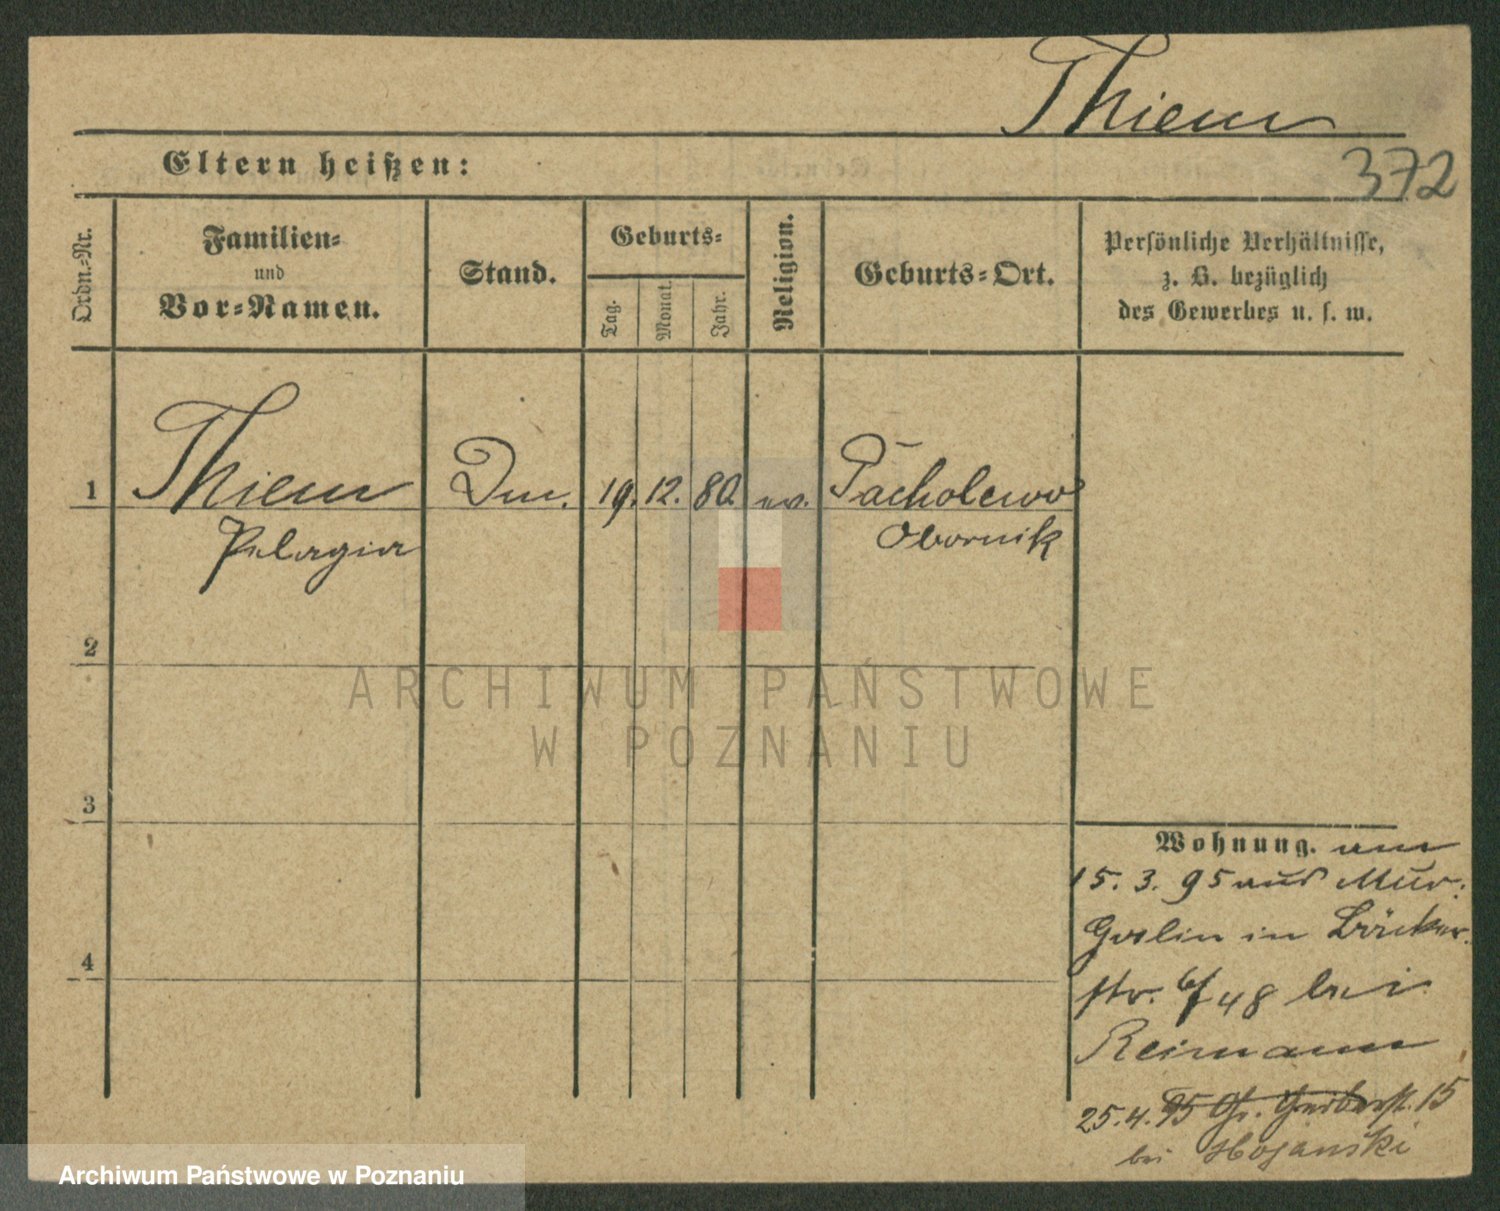 Thiem
Eltern heißen:
372
Ordn.-Nr.
Familien-
und
Vor-Namen.
Stand.
Geburts-
Tag.
Monat.
Jahr.
Religion.
Geburts-Ort.
Persönliche Verhältnisse,
z. B. bezüglich
des Gewerbes u. s. w.
1
Thiem
Pelagia
19.
12.
80.
ev.
Pacholewo
Obornik
2
3
4
Wohnung. am
15. 3. 95 aus Mur.
Goslin in Bäcker
str. 48 bei
Reimann
25. 4. 95 Gr. Gerberst. 15
bei
ARCHIWUM PAŃSTWOWE
W POZNANIU
Archiwum Państwowe w Poznaniu